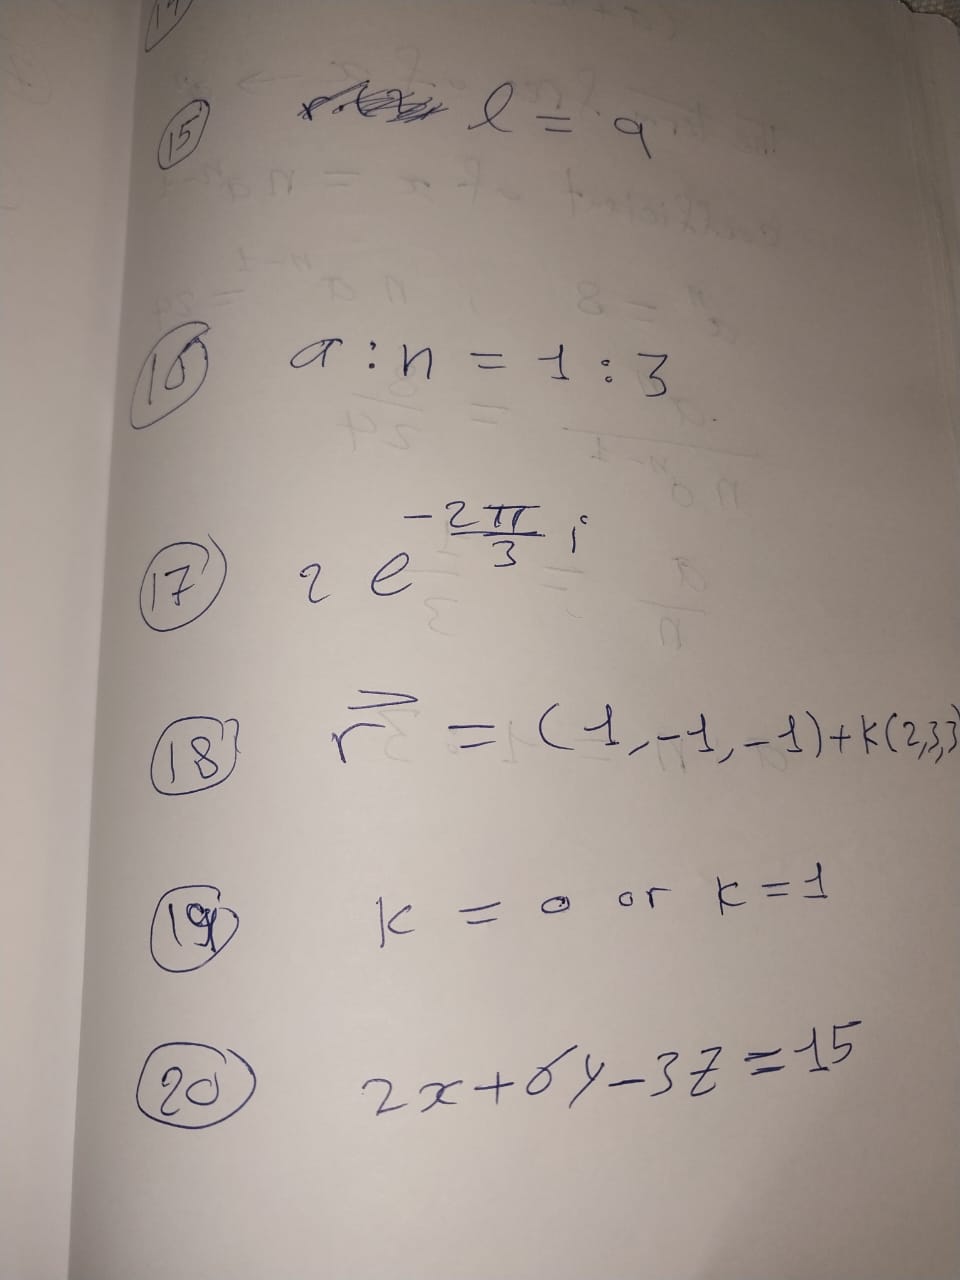 15 l = 9
16 a : n = 1 : 3
17 2 e^(-2π/3 i)
18 r⃗ = (1, -1, -1) + k(2,3,3)
19 k = 0 or k = 1
20 2x + 6y - 3z = 15